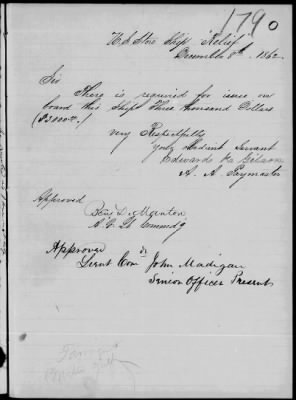 1790
U.S. Store Ship "Relief"
December 8th 1862.
Sir
There is required for issue on
board this Ship Three thousand Dollars
($3000.00/)
Very Respectfully
Your Obedient Servant
Edward
A. A. Paymaster
Approved
Benj. D. Manton
A. V. Lt Commdg
Approved
Lieut Comdr John Madigan
Senior Officer Present